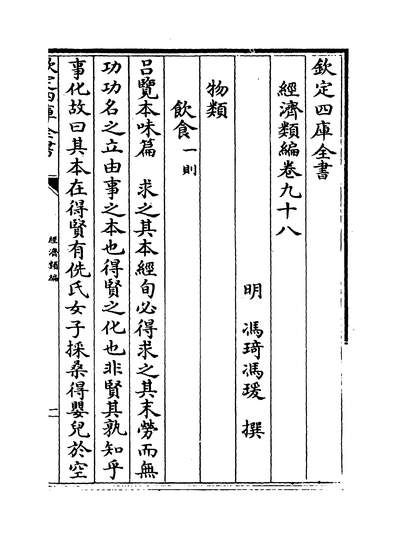 欽定四庫全書
經濟類編卷九十八
明　馮琦馮瑗　撰
物類
飲食一則
呂覽本味篇　求之其本經旬必得求之其末勞而無
功功名之立由事之本也得賢之化也非賢其孰知乎
事化故曰其本在得賢有侁氏女子採桑得嬰兒於空
欽定四庫全書
經濟類編
二